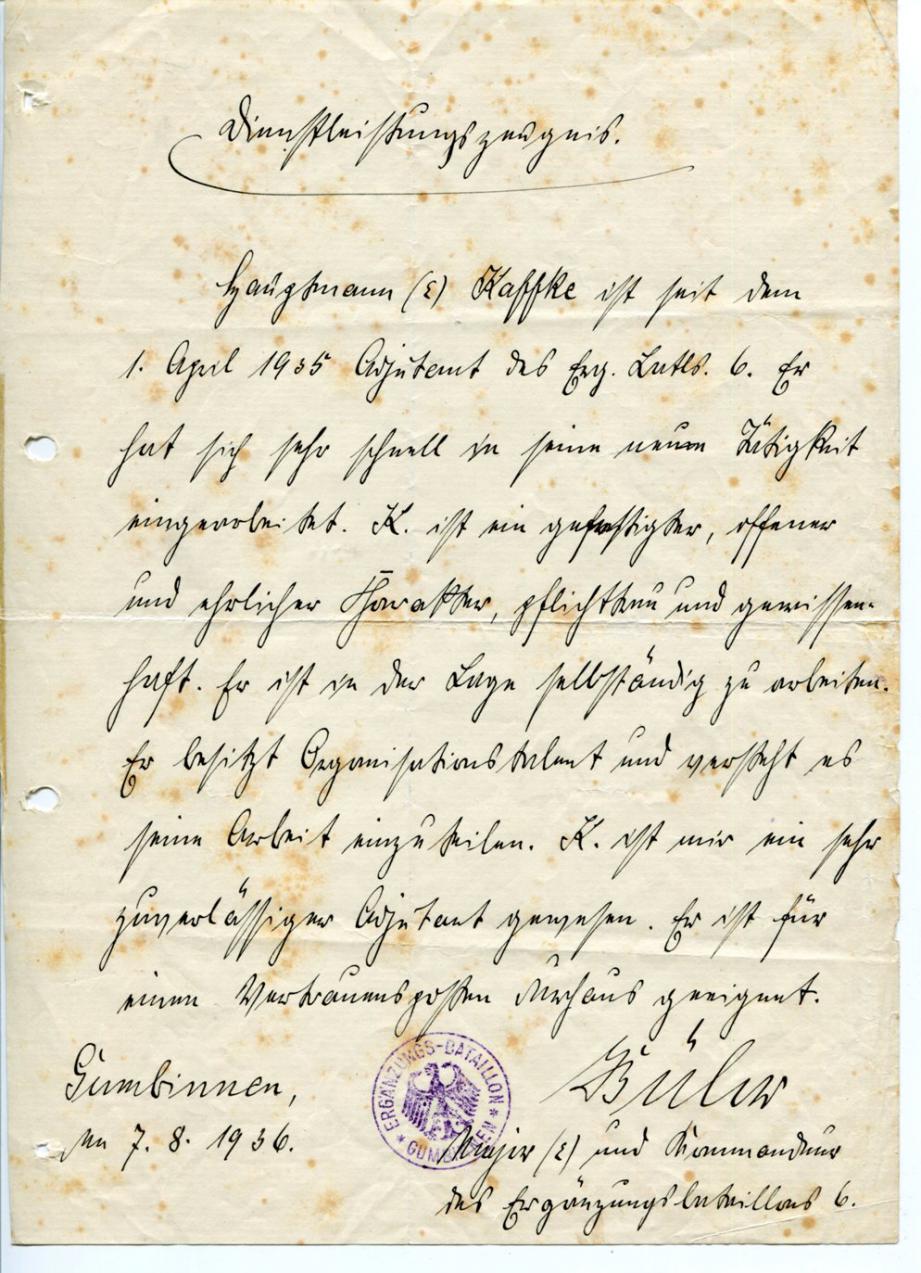 Dienstleistungszeugnis.
Hauptmann (E) Kaffke ist seit dem
1. April 1935 Adjutant des Erg. Batls. 6. Er
hat sich sehr schnell in seine neue Tätigkeit
eingearbeitet. K. ist ein gefestigter, offener
und ehrlicher Charakter, pflichttreu und gewissen-
haft. Er ist in der Lage selbständig zu arbeiten.
Er besitzt Organisationstalent und versteht es
seine Arbeit einzuteilen. K. ist mir ein sehr
zuverlässiger Adjutant gewesen. Er ist für
einen Vertrauensposten durchaus geeignet.
ERGÄNZUNGS-BATAILLON
* GUMBINNEN *
Gumbinnen,
den 7. 8. 1936.
Major (E) und Kommandeur
des Ergänzungsbataillons 6.